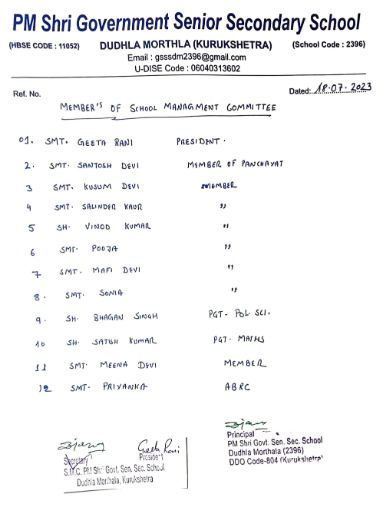 PM Shri Government Senior Secondary School
(HBSE CODE : 11052) DUDHLA MORTHLA (KURUKSHETRA) (School Code : 2396)
Email : gsssdm2396@gmail.com
U-DISE Code : 06040313602
Ref. No. Dated: 18-07-2023
MEMBER'S OF SCHOOL MANAGMENT COMMITTEE
01. SMT. GEETA RANI PRESIDENT.
2. SMT. SANTOSH DEVI MEMBER OF PANCHAYAT
3 SMT. KUSUM DEVI MEMBER
4 SMT. SALINDER KAUR "
5 SH. VINOD KUMAR "
6 SMT. POOJA "
7 SMT. MAFI DEVI "
8. SMT. SONIA "
9. SH. BHAGAN SINGH PGT- POL SCI.
10 SH. SATISH KUMAR PGT- MATHS
11 SMT. MEENA DEVI MEMBER
12 SMT. PRIYANKA ABRC
Geeta Rani
Secretary President
S.M.C. PM Shri Govt. Sen. Sec. School
Dudhla Morthala, Kurukshetra
Principal
PM Shri Govt. Sen. Sec. School
Dudhla Morthala (2396)
DDO Code-804 (Kurukshetra)